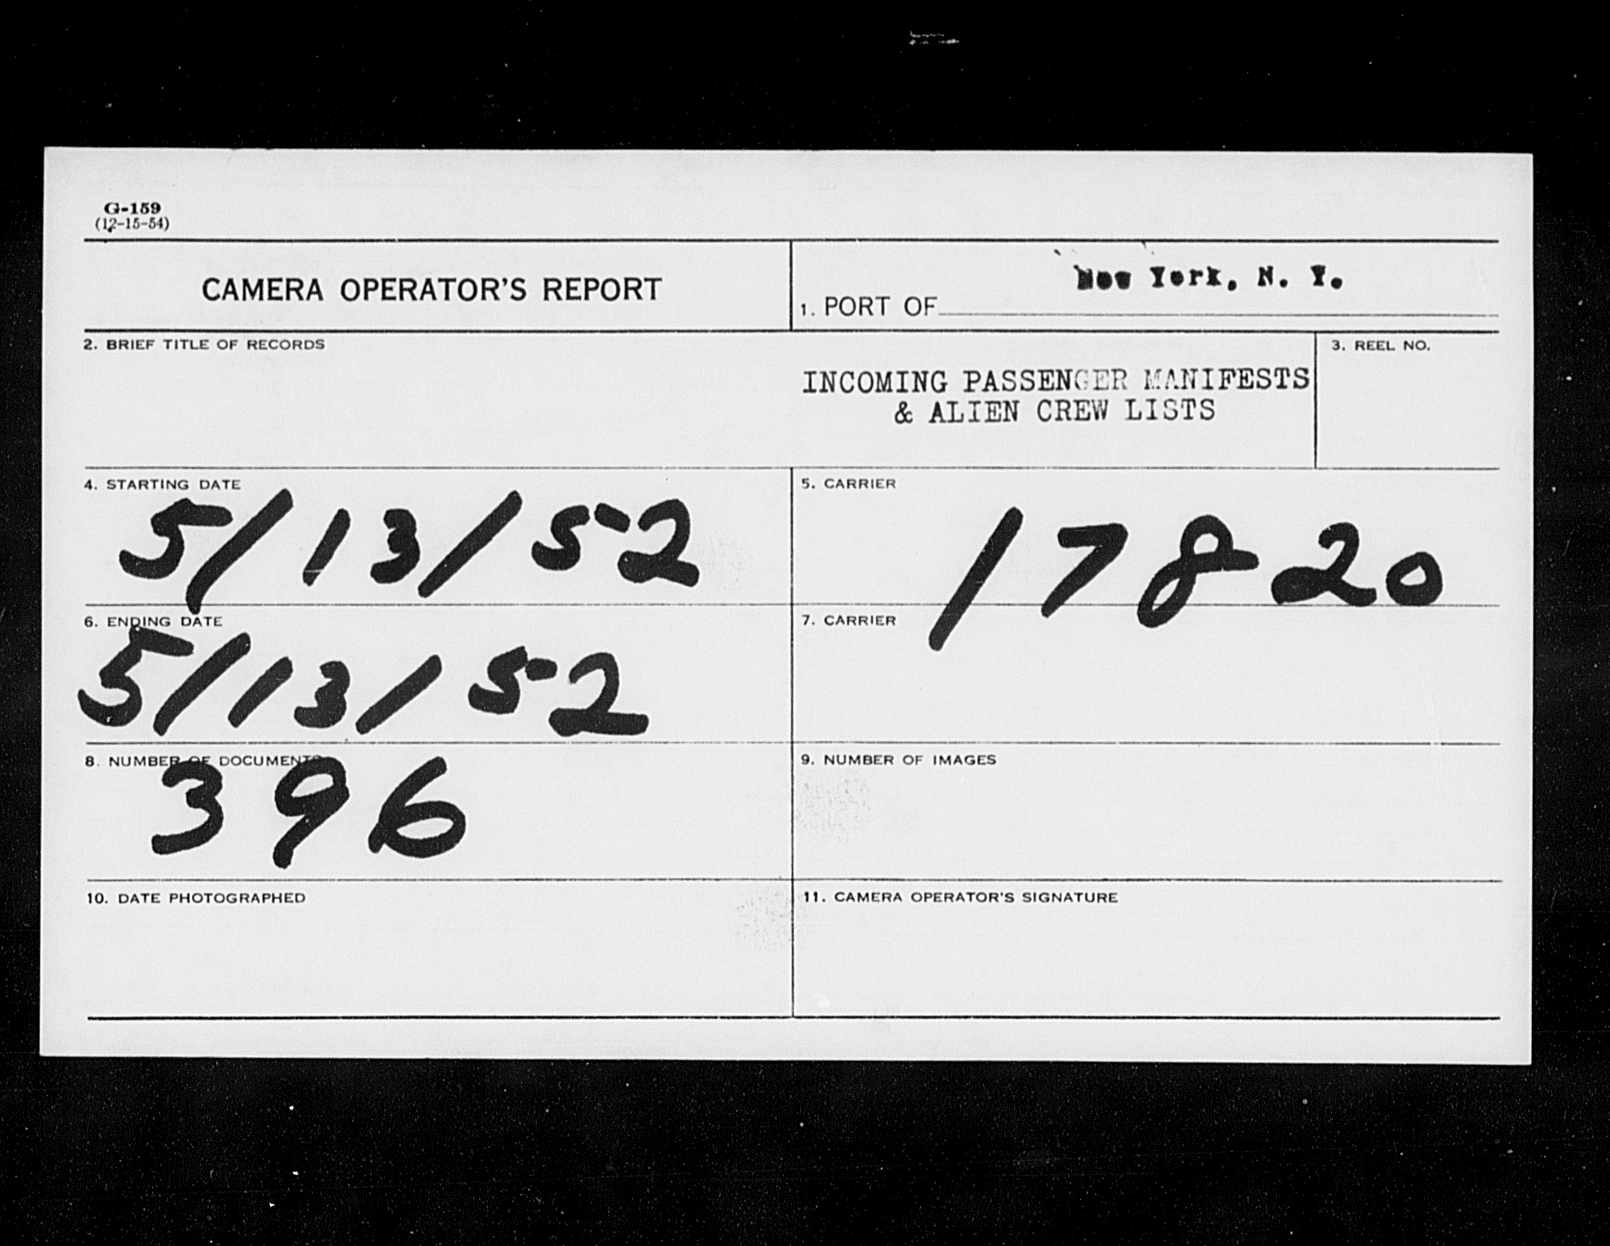 G-159
(12-15-54)
CAMERA OPERATOR'S REPORT
1. PORT OF New York, N. Y.
2. BRIEF TITLE OF RECORDS
INCOMING PASSENGER MANIFESTS
& ALIEN CREW LISTS
3. REEL NO.
4. STARTING DATE
5/13/52
5. CARRIER
17820
6. ENDING DATE
5/13/52
7. CARRIER
8. NUMBER OF DOCUMENTS
396
9. NUMBER OF IMAGES
10. DATE PHOTOGRAPHED
11. CAMERA OPERATOR'S SIGNATURE